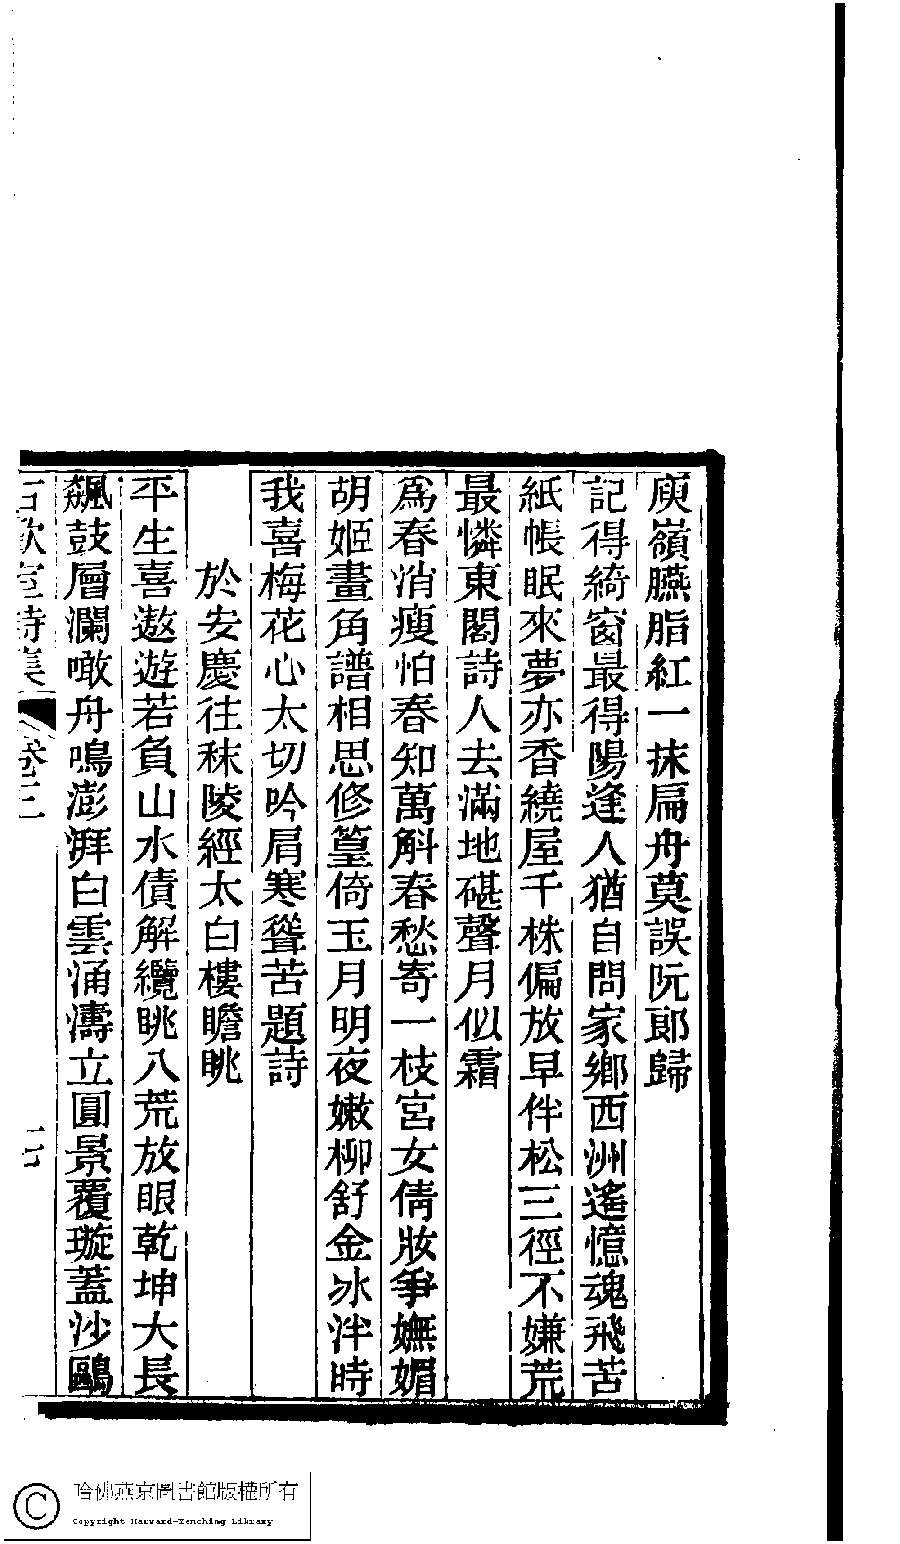 庾嶺臙脂紅一抹扁舟莫誤阮郎歸
記得綺窗最得陽逢人猶自問家鄉西洲遙憶魂飛苦
紙帳眠來夢亦香繞屋千株偏放早伴松三徑不嫌荒
最憐東閣詩人去滿地碪聲月似霜
爲春消瘦怕春知萬斛春愁寄一枝宮女倩妝爭嫵媚
胡姬畫角譜相思修篁倚玉月明夜嫩柳舒金冰泮時
我喜梅花心太切吟肩寒聳苦題詩
於安慶往秣陵經太白樓瞻眺
平生喜遨遊若負山水債解纜眺八荒放眼乾坤大長
飆鼓層瀾噉舟鳴澎湃白雲涌濤立圓景覆璇蓋沙鷗
卷三
哈佛燕京圖書館版權所有
Copyright Harvard-Yenching Library